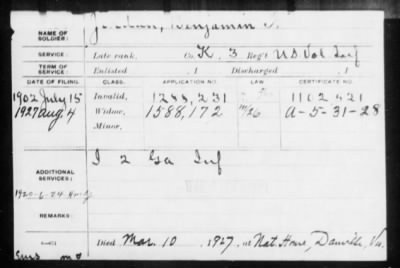 NAME OF SOLDIER: Benjamin
SERVICE: Late rank, Co. K, 3 Reg't US Vol Inf
TERM OF SERVICE: Enlisted , 1 Discharged , 1
DATE OF FILING. CLASS. APPLICATION NO. LAW. CERTIFICATE NO.
1902 July 15 Invalid, 1288,231 1102421
1927 Aug. 4 Widow, 1588,172 A-5-31-28
Minor,
ADDITIONAL SERVICES: I 2 Ga Inf
REMARKS:
Died Mar. 10, 1927, at Nat Home, Danville, Va.